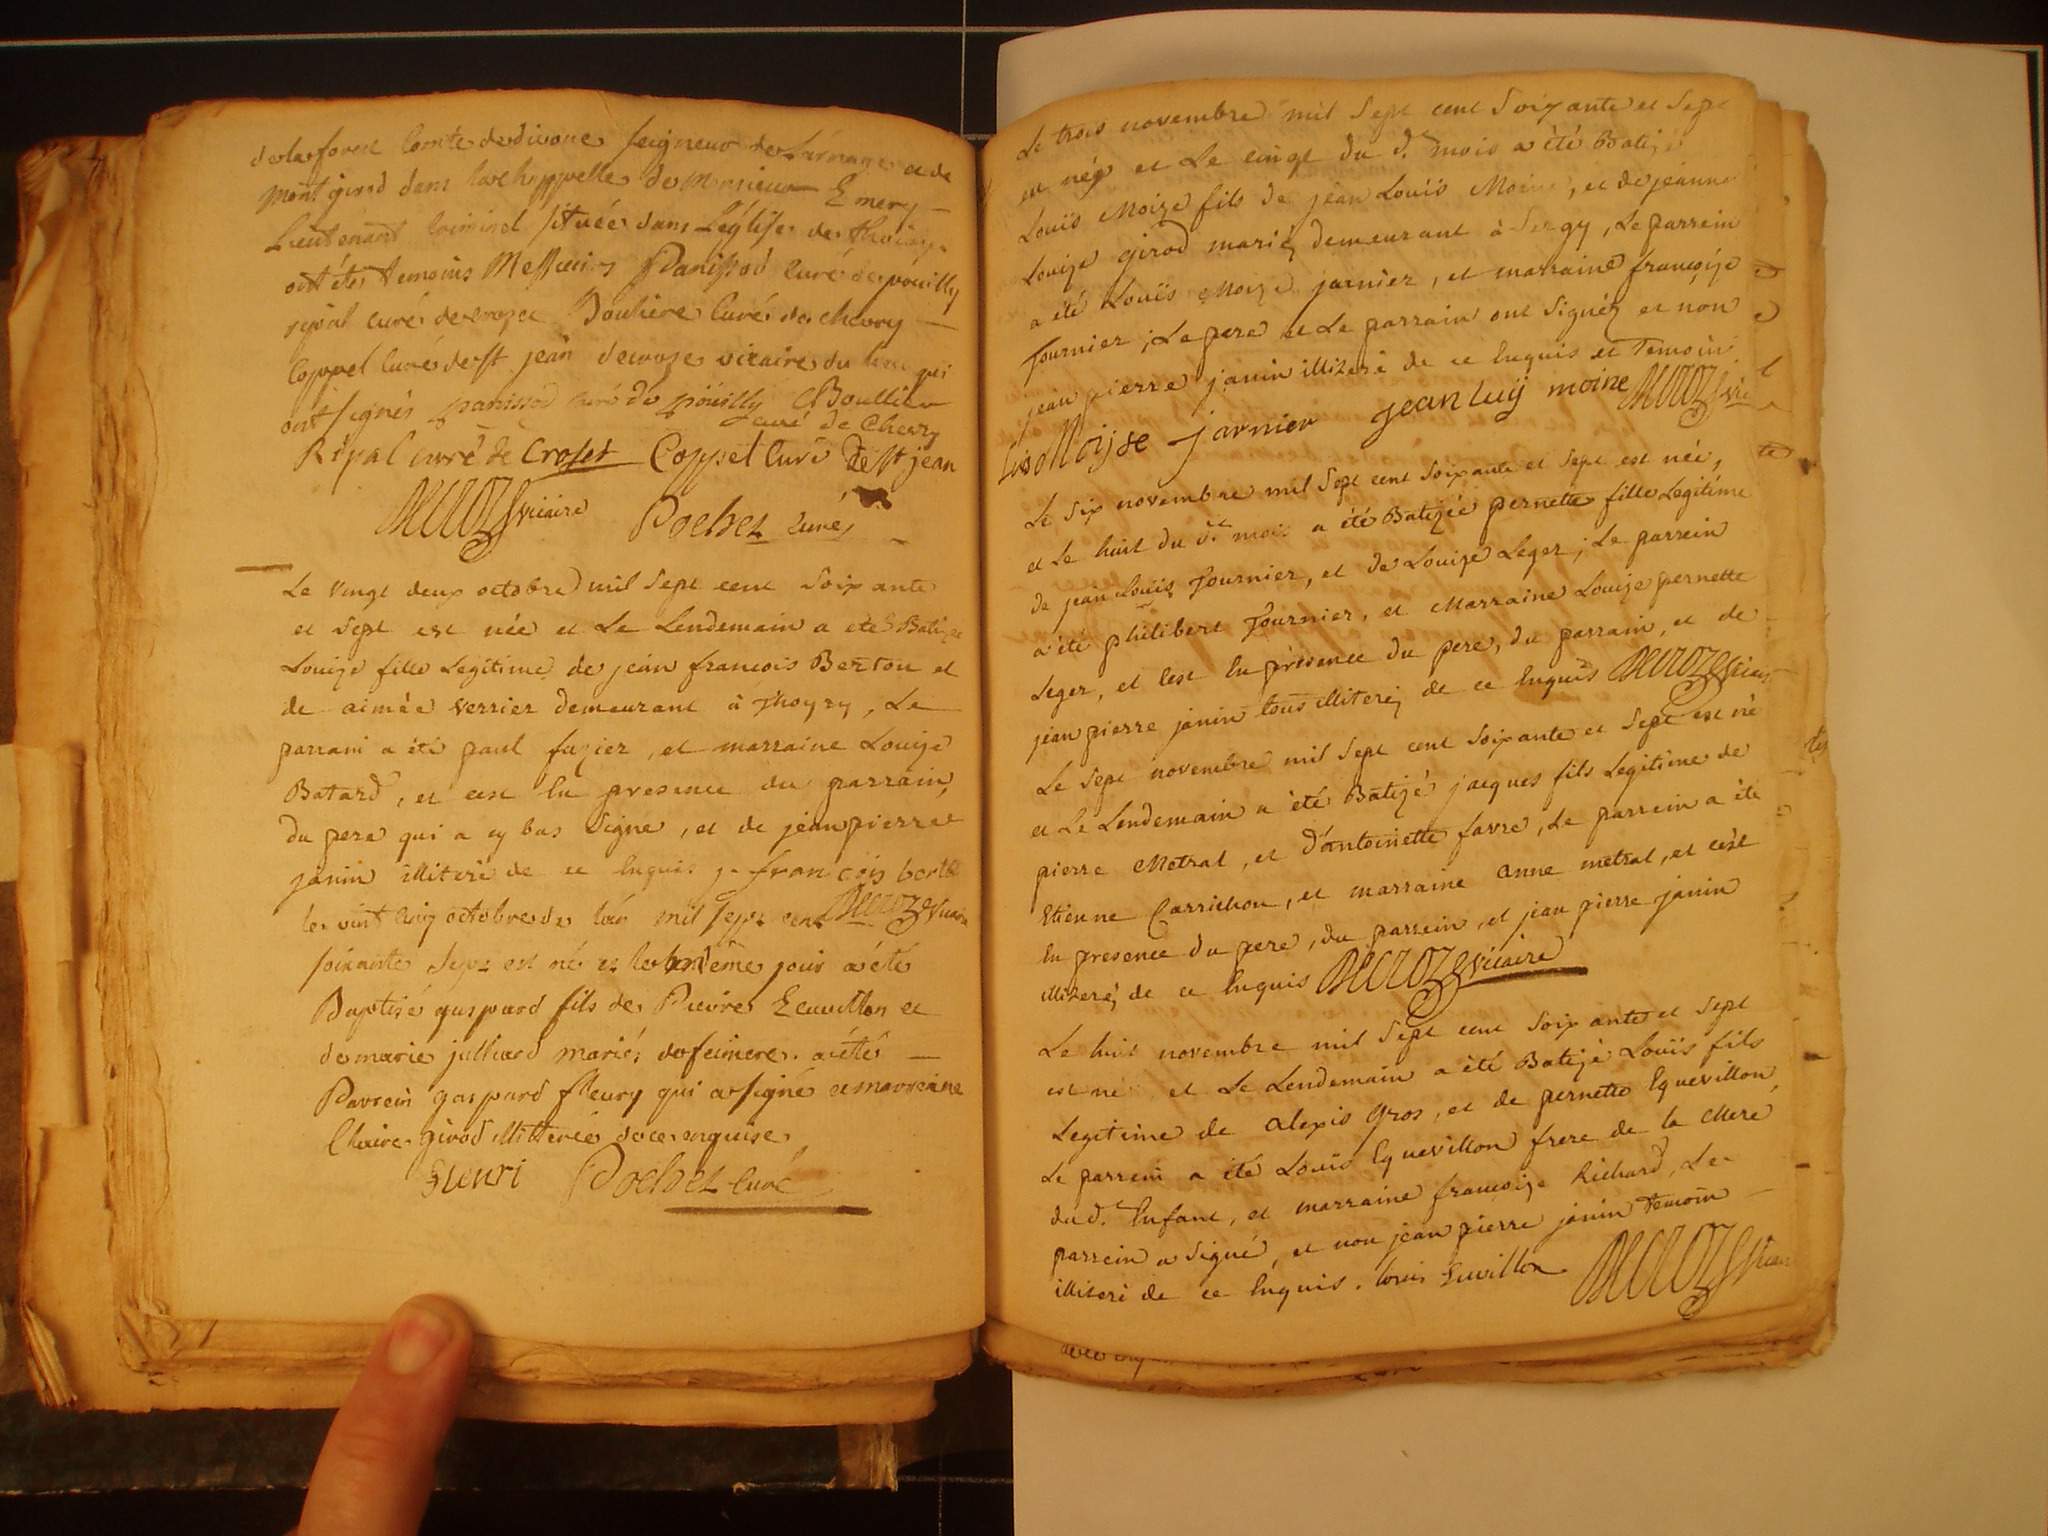 de la forest Comte de divone seigneur de Larnage et de
Mont girod dans la chappelle de Monsieur Emery
Lieutenant Criminel située dans L'église de thoiry
ont étés temoins Messieurs Panissod curé de pouilly
ripal curé de crozet Bouliere Curé de chevry
Coppel Curé de st jean decroze vicaire du lieu qui
ont signés panissod curé de pöuilly Boullier
curé de Chevry
Ripal curé de Croset Coppel Curé de st jean
Decroze vicaire Pochet curé
Le vingt deux octobre mil sept cent soixante
et sept est née et Le Lendemain a eté Batizée
Louize fille Legitime de jean francois Berton et
de aimée verrier demeurant à Thoyry, Le
parrain a été paul fuzier, et marraine Louize
Batard, et cest En presence du parrain,
du pere qui a cy bas signé, et de jean pierre
janin illiteré de ce Enquis j. francois bert
le vint cinq octobre de lan mil sept cent Decroze vicaire
soixante sept est né et le même jour a été
Baptisé gaspard fils de Pierre Ecuvillon et
de marie julliard mariés de feinere. a étés
Parrein gaspard fleury qui a signé et marreine
Claire girod illiterée de ce enquise
fleuri Pochet curé
Le trois novembre mil sept cent soixante et sept
est néz et Le cinqt du d. mois a été Batizé
Louïs Moize fils de jean Louïs Moine, et de jeanne
Louize girod mariez demeurant à Sergy, Le parrein
a été Louïs Moize jarnier, et marraine françoize
fournier; Le pere et Le parrain ont signéz et non
jean pierre janin illiteré de ce Enquis et Temoin
Luis Moijse jarnier jean luij moine Decroze vic
Le six novembre mil sept cent soixante et sept est née,
et Le huit du dt mois a été Batizée pernette fille Legitime
de jean Louïs fournier, et de Louize Leger; Le parrein
a été philibert fournier, et Marraine Louize pernette
Leger, et Cest En présence du pere, du parrain, et de
jean pierre janin tous illiterez de ce Enquis Decroze vicaire
Le sept novembre mil sept cent soixante et sept est né
et Le Lendemain a été Batizé jacques fils Legitime de
pierre Metral, et d'antoinette favre, Le parrein a été
Etienne Carrichon, et marraine anne metral, et c'est
En presence du pere, du parrein, et jean pierre janin
illiterez de ce Enquis Decroze vicaire
Le huit novembre mil sept cent soixante et sept
est né et Le Lendemain a été Batizé Louïs fils
Legitime de alexis gros, et de pernette Equevillon,
Le parrein a été Louïs Equevillon frere de la Mere
du d. Enfant, et marraine françoize Richard, Le
parrein a signé, et non jean pierre janin temoin
illiteré de ce Enquis. louis Euvillon Decroze vicaire